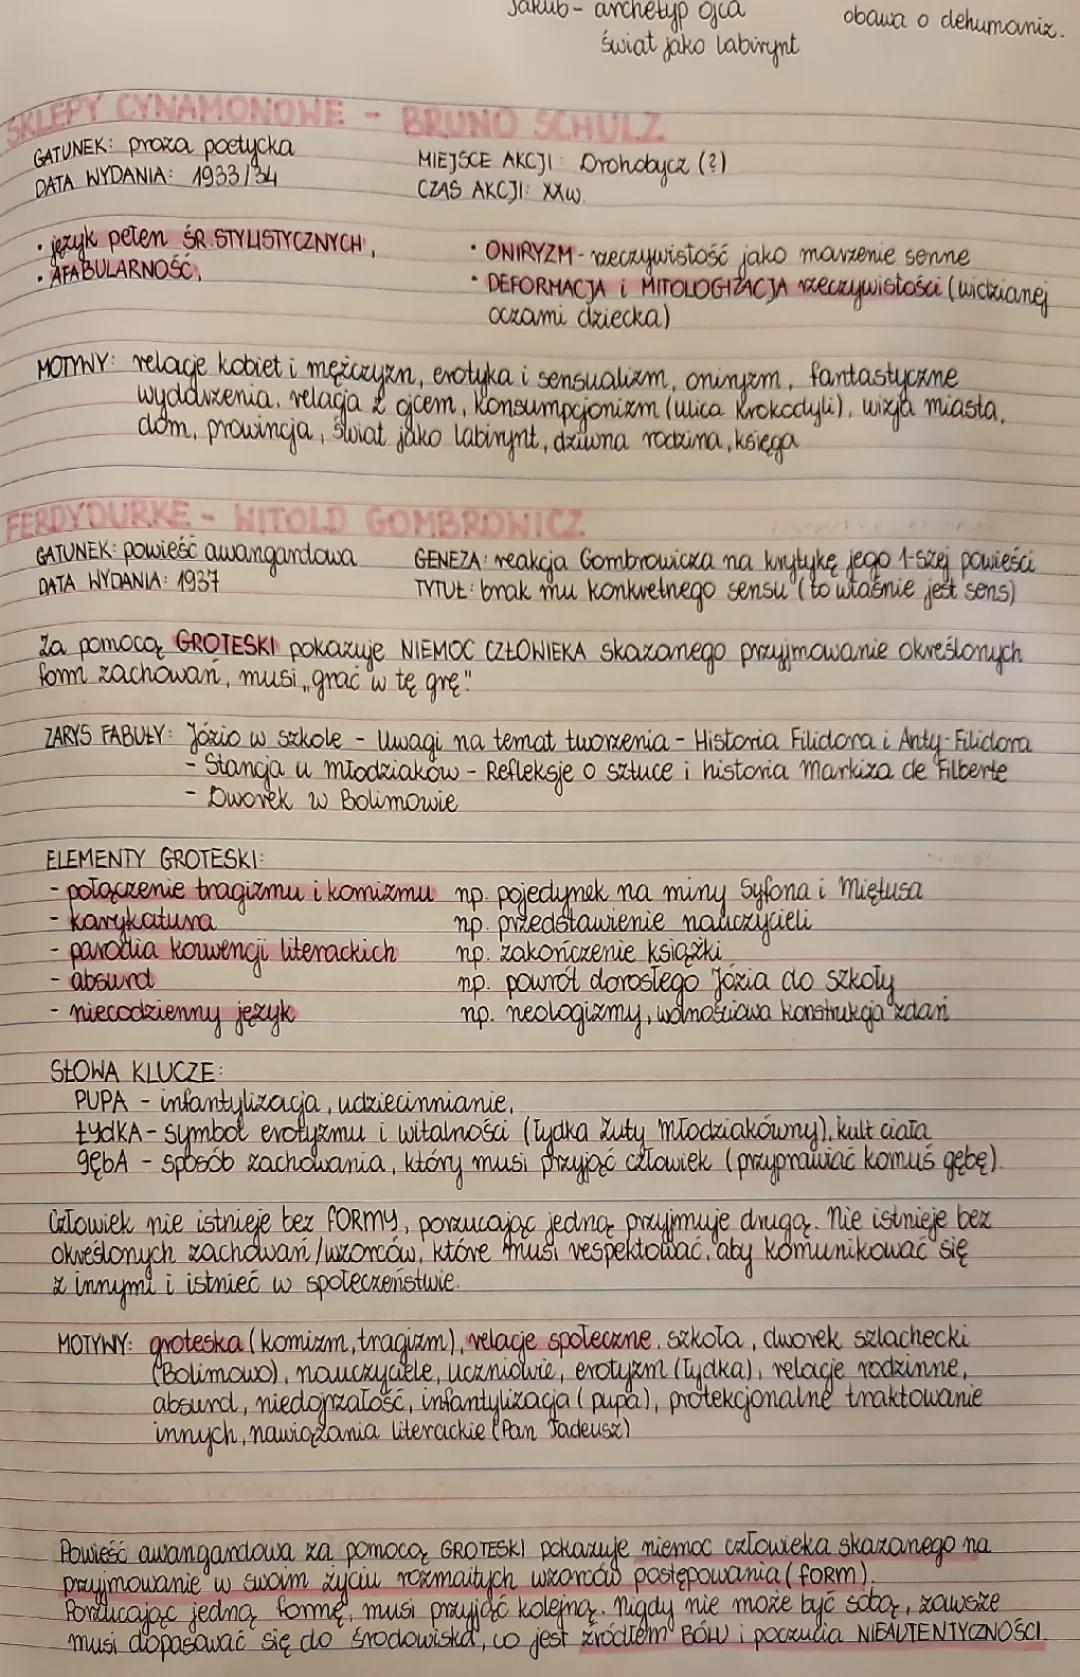 Jakub - archetyp ojca
świat jako labirynt
obawa o dehumaniz.
SKLEPY CYNAMONOWE - BRUNO SCHULZ
GATUNEK: proza poetycka
DATA WYDANIA: 1933/34
MIEJSCE AKCJI: Drohobycz (?)
CZAS AKCJI: XXw.
• język pełen ŚR. STYLISTYCZNYCH,
• AFABULARNOŚĆ,
• ONIRYZM - rzeczywistość jako marzenie senne
• DEFORMACJA i MITOLOGIZACJA rzeczywistości (widzianej
oczami dziecka)
MOTYWY: relacje kobiet i mężczyzn, erotyka i sensualizm, oniryzm, fantastyczne
wydarzenia, relacja z ojcem, konsumpcjonizm (ulica Krokodyli), wizja miasta,
dom, prowincja, świat jako labirynt, dziwna rodzina, księga
FERDYDURKE - WITOLD GOMBROWICZ
GATUNEK: powieść awangardowa
DATA WYDANIA: 1937
GENEZA: reakcja Gombrowicza na krytykę jego 1-szej powieści
TYTUŁ: brak mu konkretnego sensu (to właśnie jest sens)
Za pomocą GROTESKI pokazuje NIEMOC CZŁOWIEKA skazanego przyjmowanie określonych
form zachowań, musi „grać w tę grę"
ZARYS FABUŁY: Józio w szkole - Uwagi na temat tworzenia - Historia Filidora i Anty-Filidora
- Stancja u młodziaków - Refleksje o sztuce i historia Markiza de Filberte
- Dworek w Bolimowie
ELEMENTY GROTESKI:
- połączenie tragizmu i komizmu np. pojedynek na miny Syfona i Miętusa
- karykatura np. przedstawienie nauczycieli
- parodia konwencji literackich np. zakończenie książki
- absurd np. powrót dorosłego Józia do szkoły
- niecodzienny język np. neologizmy, wolnościowa konstrukcja zdań
SŁOWA KLUCZE:
PUPA - infantylizacja, udziecinnianie,
ŁYdKA - symbol erotyzmu i witalności (łydka Zuty Młodziakówny), kult ciała
GĘbA - sposób zachowania, który musi przyjąć człowiek (przyprawiać komuś gębę).
Człowiek nie istnieje bez FORMY, porzucając jedną przyjmuje drugą. Nie istnieje bez
określonych zachowań/wzorców, które musi respektować, aby komunikować się
z innymi i istnieć w społeczeństwie.
MOTYWY: groteska (komizm, tragizm), relacje społeczne, szkoła, dworek szlachecki
(Bolimowo), nauczyciele, uczniowie, erotyzm (łydka), relacje rodzinne,
absurd, niedojrzałość, infantylizacja (pupa), protekcjonalne traktowanie
innych, nawiązania literackie (Pan Tadeusz)
Powieść awangardowa za pomocą GROTESKI pokazuje niemoc człowieka skazanego na
przyjmowanie w swoim życiu rozmaitych wzorców postępowania (FORM).
Porzucając jedną formę, musi przyjąć kolejną. Nigdy nie może być sobą, zawsze
musi dopasować się do środowiska, co jest źródłem BÓLU i poczucia NIEAUTENTYCZNOŚCI.